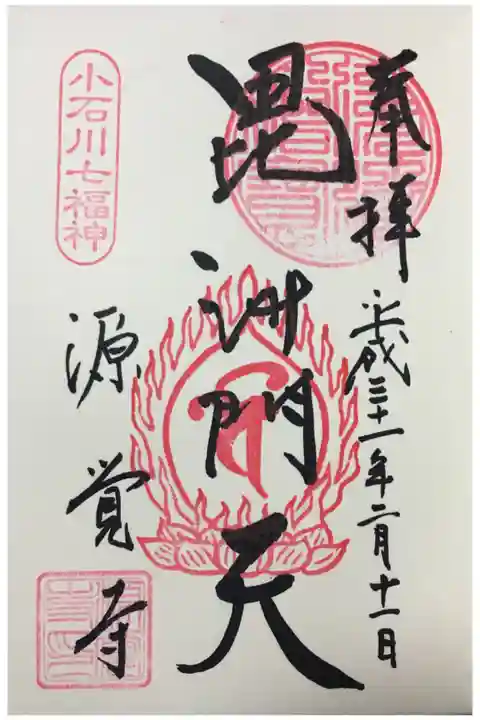 奉拝
平成三十一年二月十一日
毘沙門天
源覚寺
小石川七福神